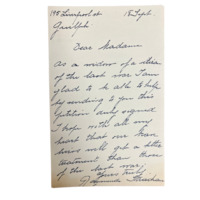 198 Liverpool st
Guelph
18 Sept.
Dear Madam
As a widow of a
of the last war I am
glad to be able to help
by sending to you this
petition only signed
I hope with all my
heart that our
will get a
treatment than those
of the last war.
Yours truly